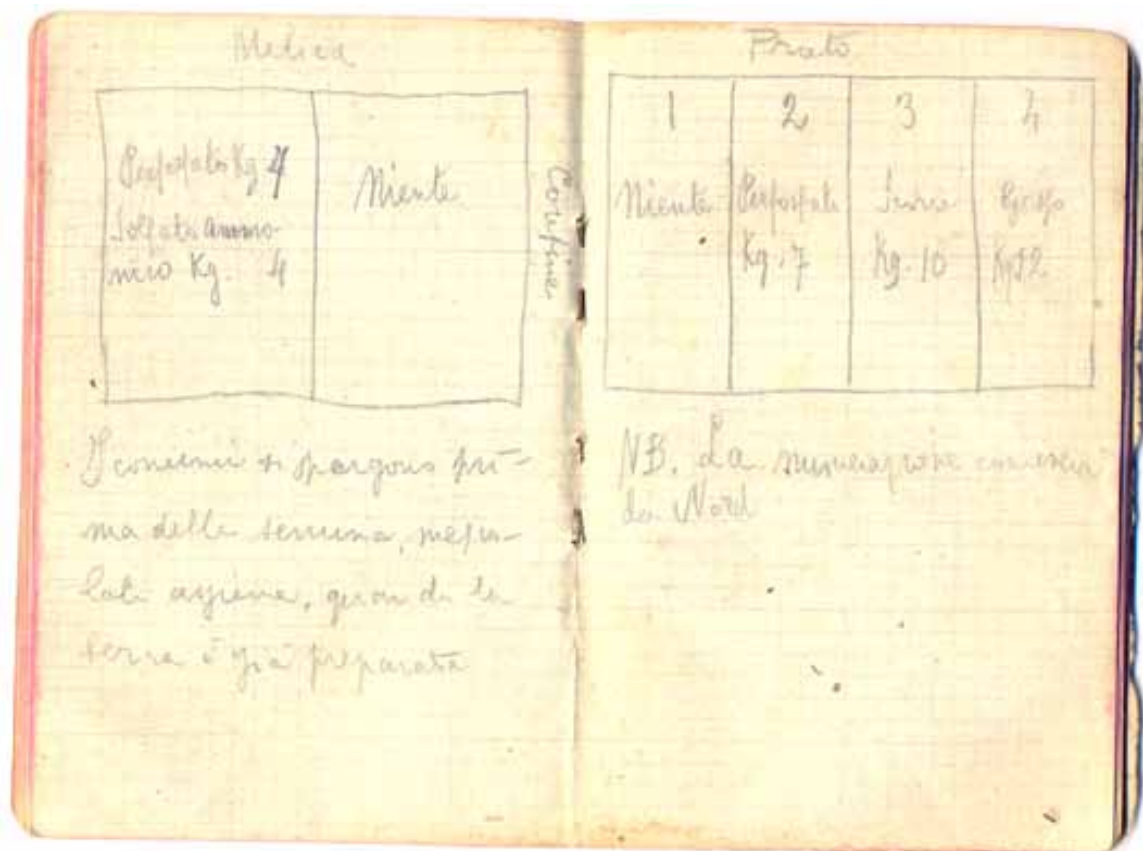 Medica
Perfosfato Kg
Solfato ammo-
nico Kg. 4
Niente
Confine
I concimi si spargono pri-
ma della semina, mesco-
lati assieme, quando la
terra è già preparata
Prato
1 2 3 4
Niente Perfosfato Gesso
Kg. 7 Kg. 10 Kg 12
NB. La numerazione comincia
da Nord